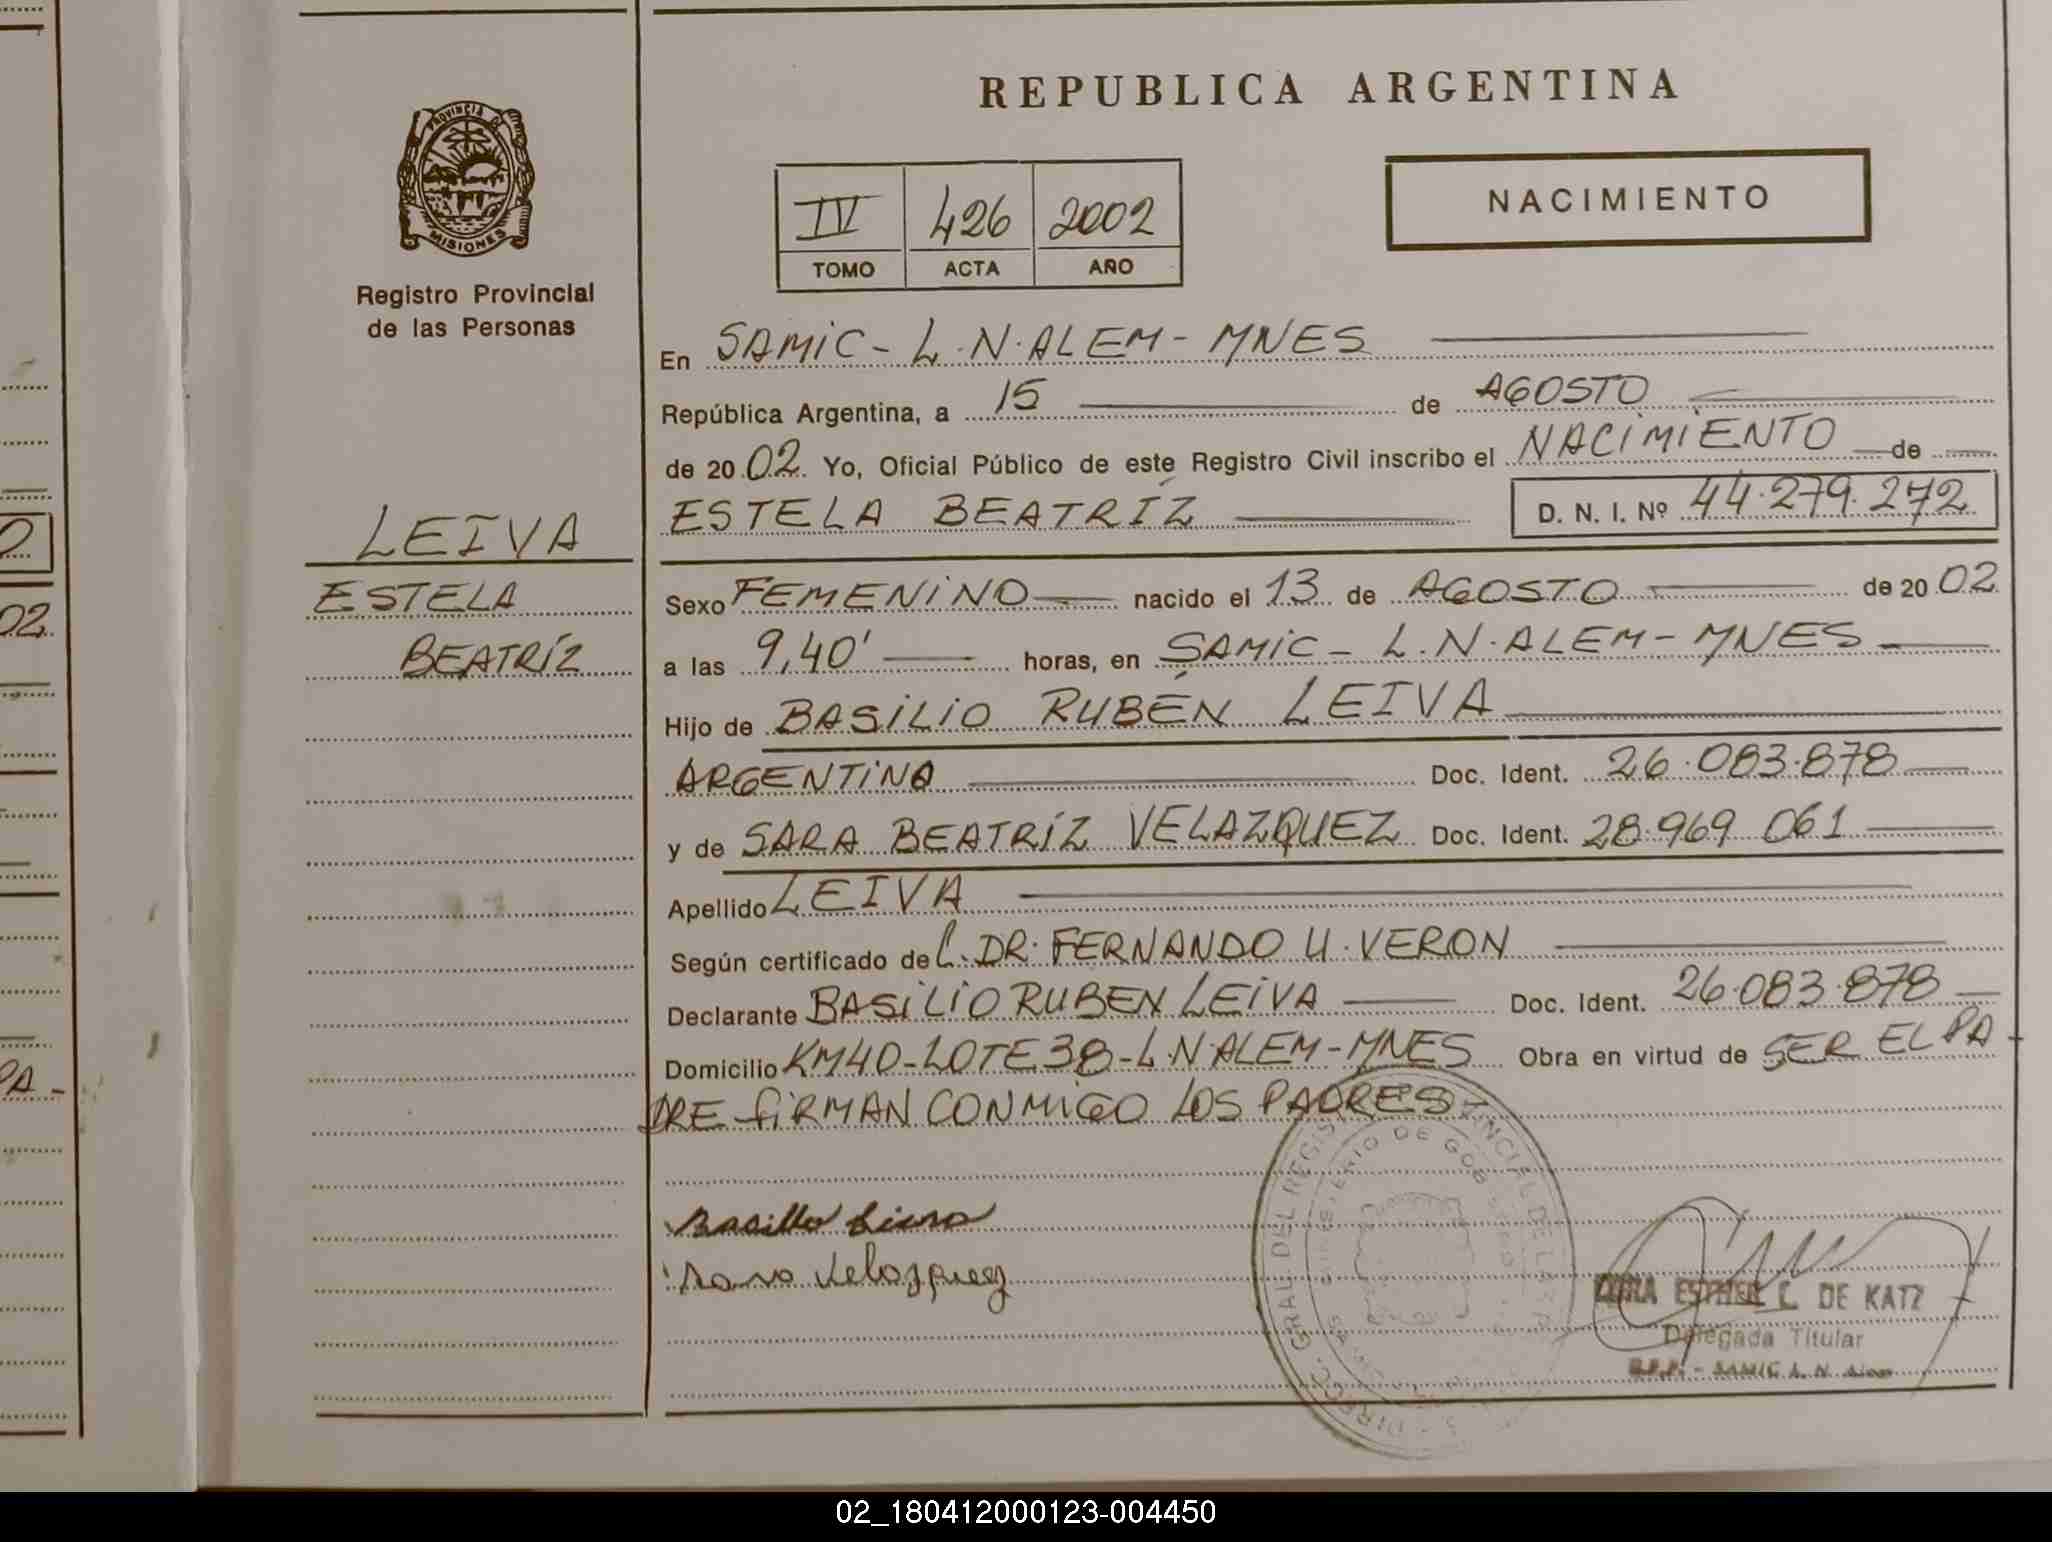 REPUBLICA ARGENTINA
PROVINCIA DE
MISIONES
Registro Provincial
de las Personas
NACIMIENTO
IV 426 2002
TOMO ACTA AÑO
En SAMIC - L.N.ALEM - MNES
República Argentina, a 15 de AGOSTO
de 20 02. Yo, Oficial Público de este Registro Civil inscribo el NACIMIENTO de
ESTELA BEATRÍZ D. N. I. Nº 44.279.272
LEIVA
ESTELA
BEATRÍZ
Sexo FEMENINO nacido el 13 de AGOSTO de 20 02
a las 9,40' horas, en SAMIC - L.N.ALEM - MNES
Hijo de BASILIO RUBÉN LEIVA
ARGENTINA Doc. Ident. 26.083.878
y de SARA BEATRÍZ VELAZQUEZ Doc. Ident. 28.969 061
Apellido LEIVA
Según certificado de C. DR. FERNANDO U. VERON
Declarante BASILIO RUBEN LEIVA Doc. Ident. 26.083.878
Domicilio KM40-LOTE 38-L.N.ALEM-MNES Obra en virtud de SER EL PA-
DRE FIRMAN CONMIGO LOS PADRES
Sara Velazquez
ESTHER C. DE KATZ
Delegada Titular
SAMIC L. N. Alem
02
PA-
02_180412000123-004450